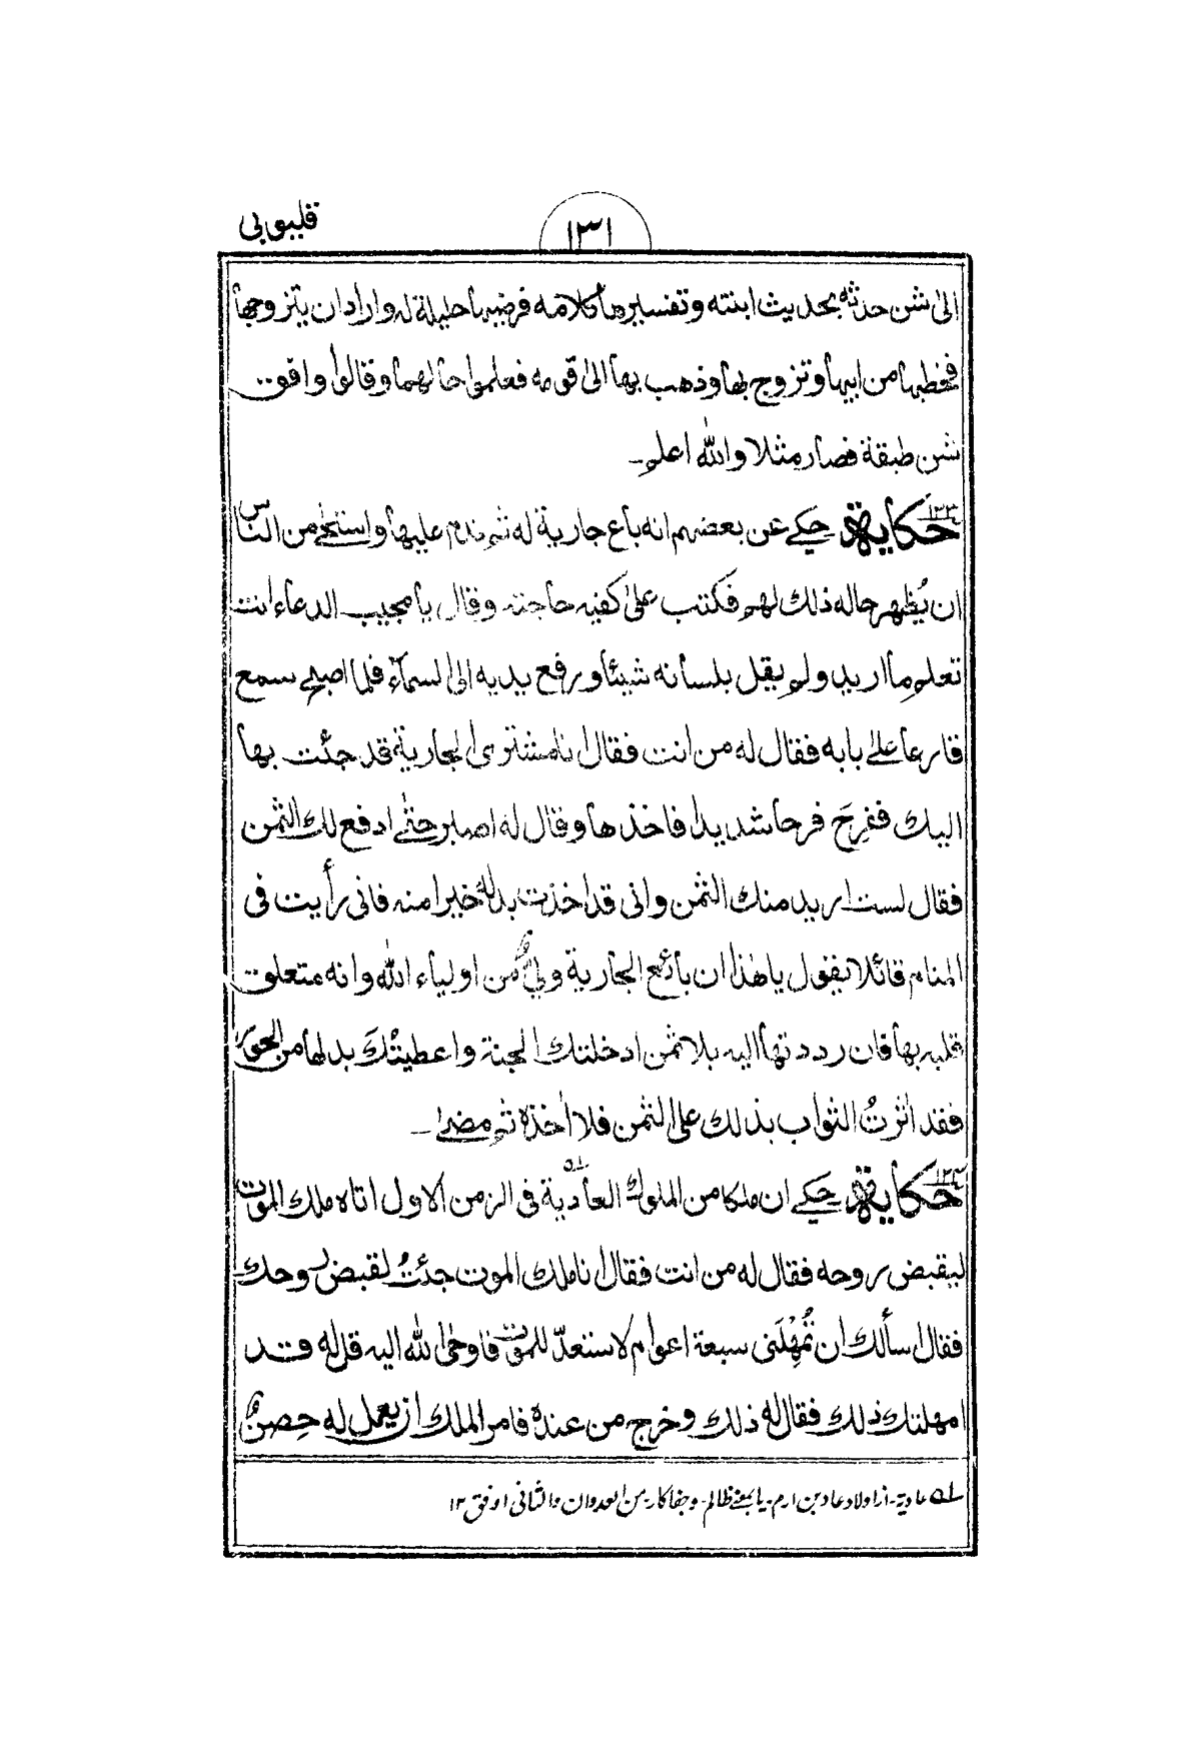 قليوبي
١٣١
الىٰ شن حدثه بحديث ابنته وتفسيرها كلامه فرضيها حليلة له واراد ان يتزوجها
فخطبها من ابيها وتزوج بها وذهب بها الىٰ قومه فعلموا حالهما وقالوا وافق
شن طبقة فصار مثلا والله اعلم
حكاية ١٣٣ حكي عن بعضهم انه باع جارية له ثم ندم عليها واستحىٰ من الناس
ان يُظهر حاله ذلك لهم فكتب علىٰ كفيه حاجته وقال يا مجيب الدعاء انت
تعلم ما اريد ولم يقل بلسانه شيئا ورفع يديه الى السماء فلما اصبح سمع
قارعا علىٰ بابه فقال له من انت فقال انا مشترى الجارية قد جئت بها
اليك ففرِحَ فرحا شديدا فاخذها وقال له اصبر حتّٰى ادفع لك الثمن
فقال لست اريد منك الثمن وانى قد اخذت بدله خيرا منه فانى رأيت فى
المنام قائلا يقول يا هٰذا ان بائع الجارية وليٌّ من اولياء الله وانه متعلق
قلبه بها فان رددتها اليه بلا ثمن ادخلتك الجنة واعطيتُكَ بدلها من الحور
فقد اٰثرتُ الثواب بذلك على الثمن فلا اٰخذه ثم مضىٰ
حكاية ١٣٤ حكي ان ملكا من الملوك العادية له فى الزمن الاول اتاه ملك الموت
ليقبض روحه فقال له من انت فقال انا ملك الموت جئتُ لقبض روحك
فقال اسألك ان تُمْهِلَنى سبعة اعوام لاستعدّ للموت فاوحى الله اليه قل له قد
امهلتك ذلك فقال له ذلك وخرج من عنده فامر الملك ان يعمل له حِصنٌ
له عادية۔ از اولاد عاد بن ارم۔ یا بمعنے ظالم۔ وجفا کار۔ من العدوان والثانی اوفق ١٢